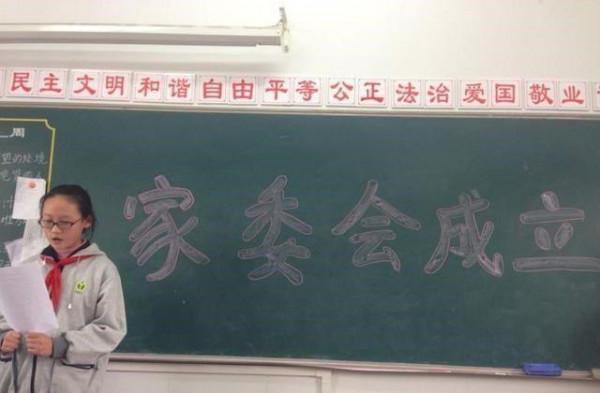 民主文明和谐自由平等公正法治爱国敬业
周
家委会成立